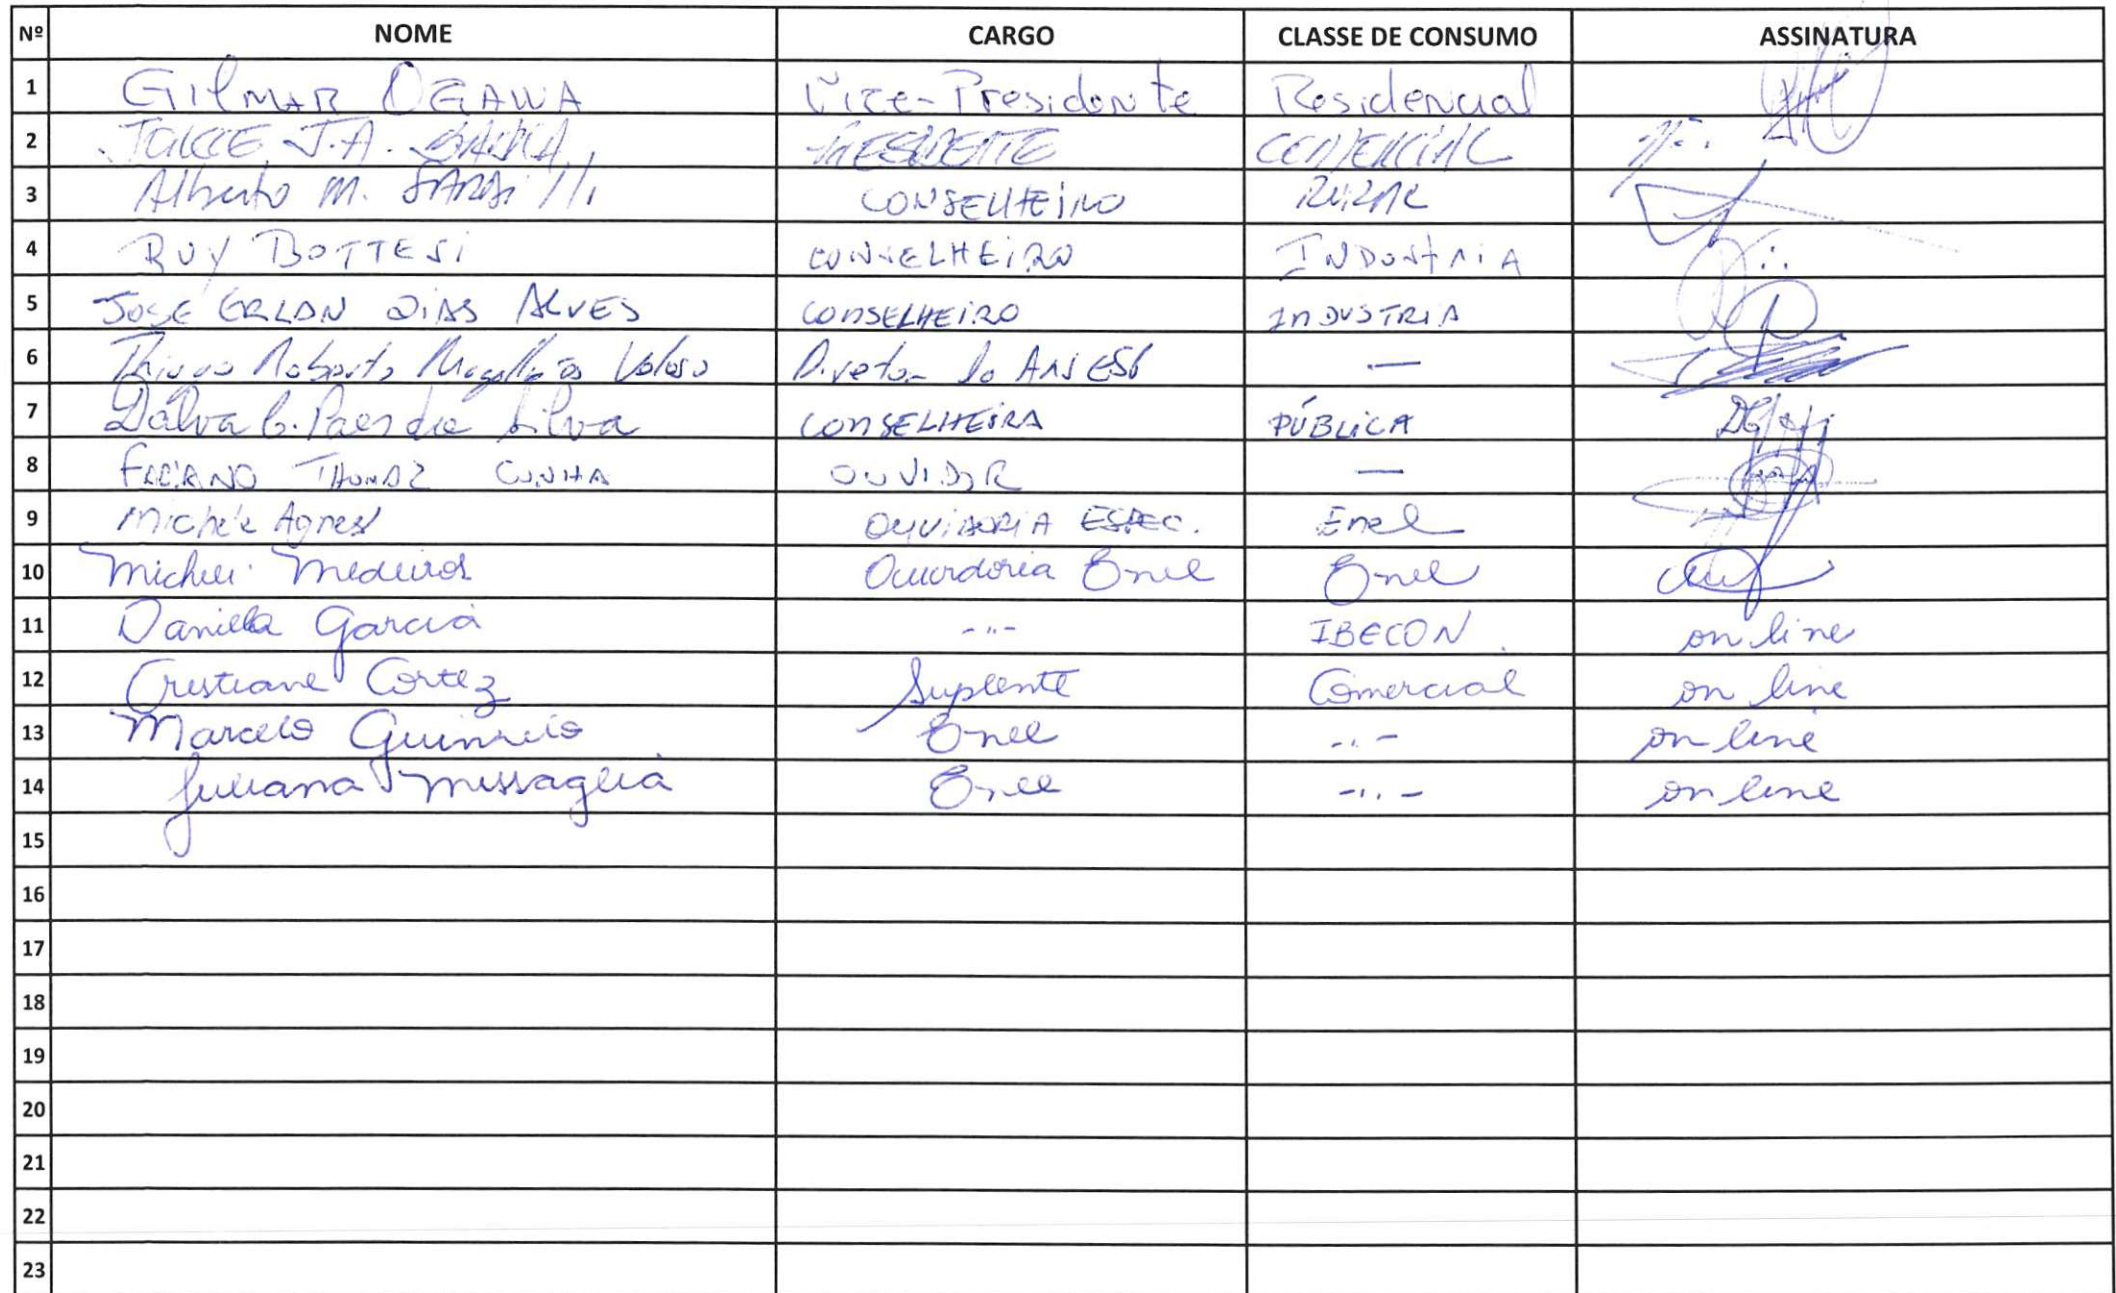 Nº NOME CARGO CLASSE DE CONSUMO ASSINATURA
1 GILMAR OGAWA Vice-Presidente Residencial
2 J.A. PRESIDENTE COMERCIAL
3 Alberto M. CONSELHEIRO RURAL
4 RUY BOTTESI CONSELHEIRO INDUSTRIA
5 JOSE ERLAN DIAS ALVES CONSELHEIRO INDUSTRIA
6 Thiago Roberto Magalhães Veloso Diretor —
7 Dalva C. Paes da Silva CONSELHEIRA PÚBLICA
8 FABIANO THOMAZ CUNHA OUVIDOR —
9 Michele Agnes OUVIDORIA ESPEC. Enel
10 Micheli Medeiros Ouvidoria Enel Enel
11 Daniella Garcia -"- IBECON on line
12 Cristiane Cortez Suplente Comercial on line
13 Marcelo Enel -"- on line
14 Juliana Missaglia Enel -"- on line
15
16
17
18
19
20
21
22
23